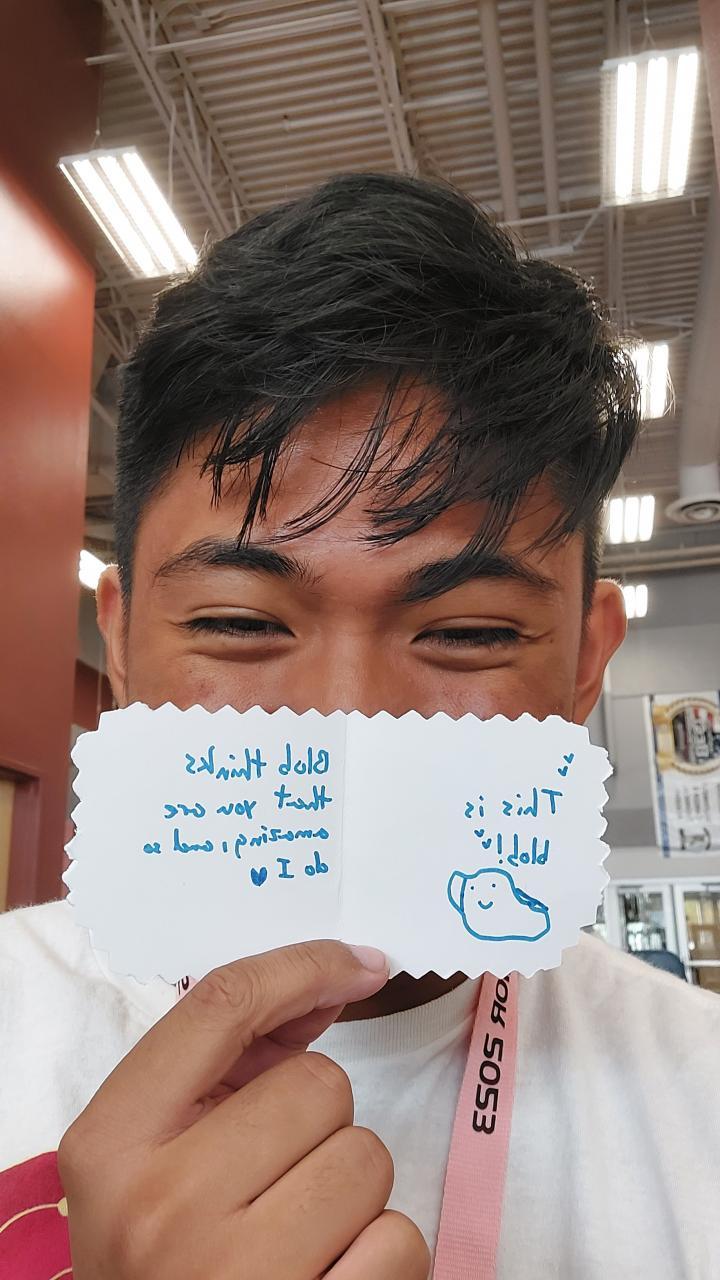 This is
blob!
Blob thinks
that you are
amazing, and so
do I
2023